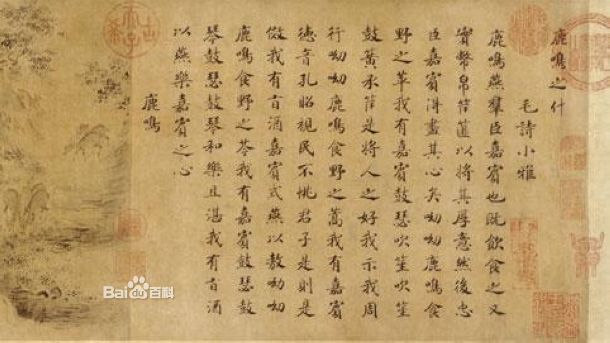 鹿鳴之什
毛詩小雅
鹿鳴燕羣臣嘉賓也既飲食之又
實幣帛筐篚以將其厚意然後忠
臣嘉賓得盡其心矣呦呦鹿鳴食
野之苹我有嘉賓鼓瑟吹笙吹笙
鼓簧承筐是將人之好我示我周
行呦呦鹿鳴食野之蒿我有嘉賓
德音孔昭視民不恌君子是則是
傚我有旨酒嘉賓式燕以敖呦呦
鹿鳴食野之芩我有嘉賓鼓瑟鼓
琴鼓瑟鼓琴和樂且湛我有旨酒
以燕樂嘉賓之心
鹿鳴
古希天子
Bai百科